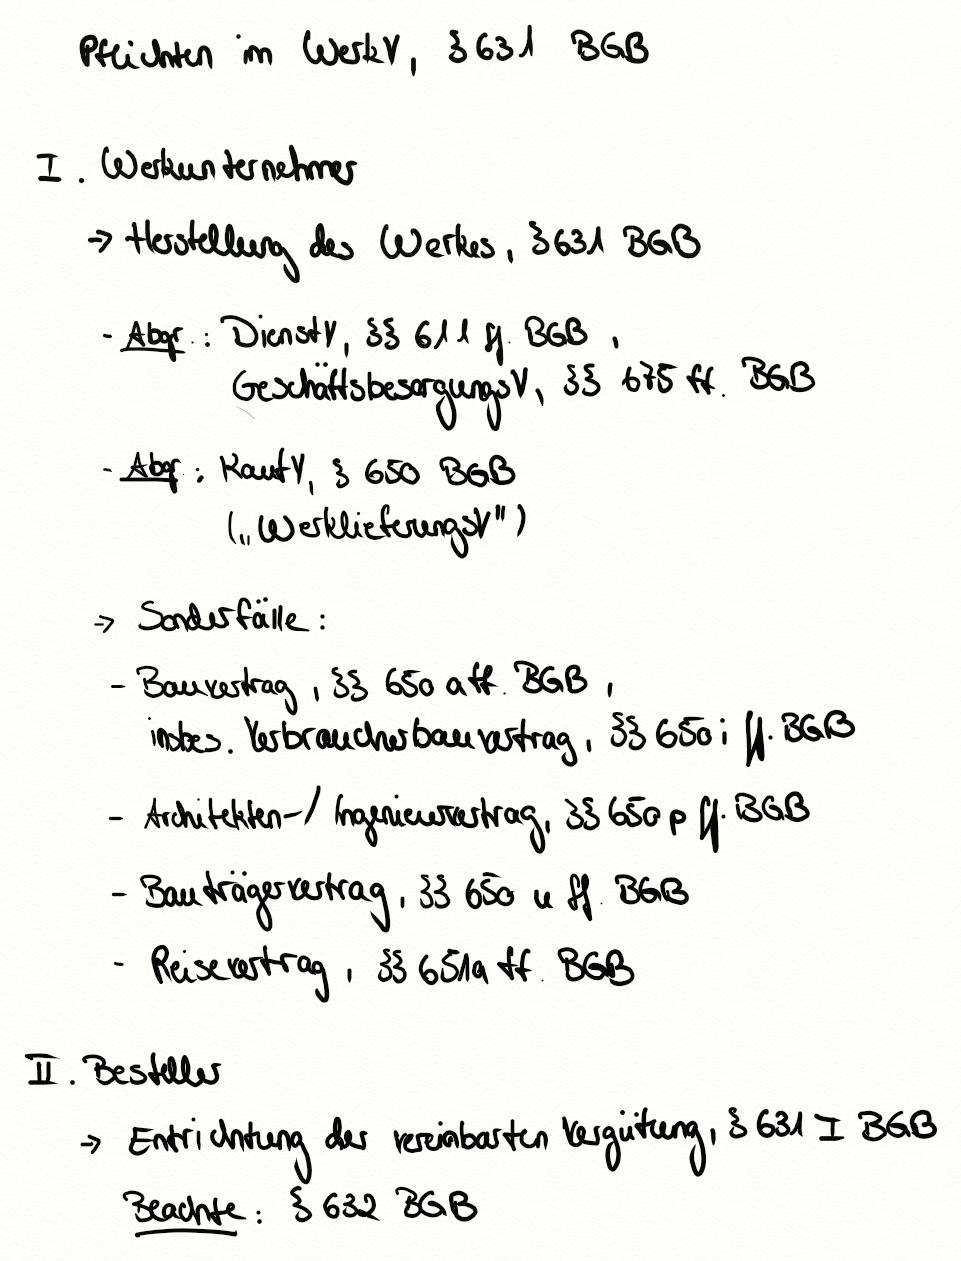 Pflichten im WerkV, § 631 BGB
I. Werkunternehmer
→ Herstellung des Werkes, § 631 BGB
- Abgr.: DienstV, §§ 611 ff. BGB,
GeschäftsbesorgungsV, §§ 675 ff. BGB
- Abgr.: KaufV, § 650 BGB
(„WerklieferungsV")
→ Sonderfälle:
- Bauvertrag, §§ 650 a ff. BGB,
insbes. Verbraucherbauvertrag, §§ 650 i ff. BGB
- Architekten-/ Ingenieurvertrag, §§ 650 p ff. BGB
- Bauträgervertrag, §§ 650 u ff. BGB
- Reisevertrag, §§ 651a ff. BGB
II. Besteller
→ Entrichtung der vereinbarten Vergütung, § 631 I BGB
Beachte: § 632 BGB